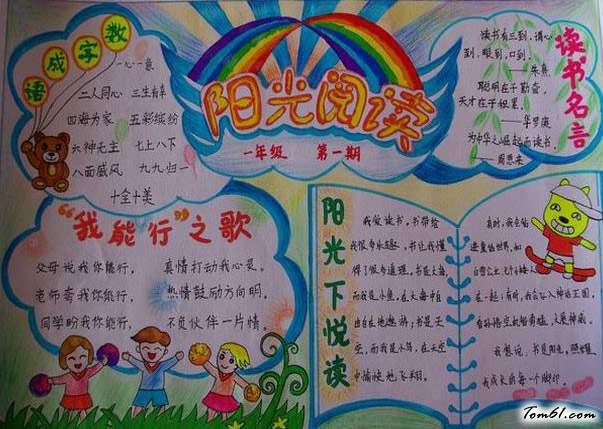 数字成语
一心一意
二人同心 三生有幸
四海为家 五彩缤纷
六神无主 七上八下
八面威风 九九归一
十全十美
阳光阅读
一年级 第一期
读书名言
读书有三到,谓心
到,眼到,口到。
——朱熹
聪明在于勤奋,
天才在于积累。
——华罗庚
为中华之崛起而读书。
——周恩来
“我能行”之歌
父母说我你能行, 真情打动我心灵。
老师夸我你能行, 热情鼓励方向明。
同学盼我你能行, 不负伙伴一片情。
阳光下悦读
我爱读书。书带给
我很多乐趣,书让我懂
得了很多道理。书是大海,
而我是小鱼,在大海中自
由自在地遨游;书是天
空,而我是小鸟,在天空
中愉快地飞翔。
有时,我会钻
进童话世界,和
白雪公主
在一起;有时,我会飞入神话王国,
看孙悟空
我想说:书是阳光,照耀
我成长的每一个脚印。
Tom61.com